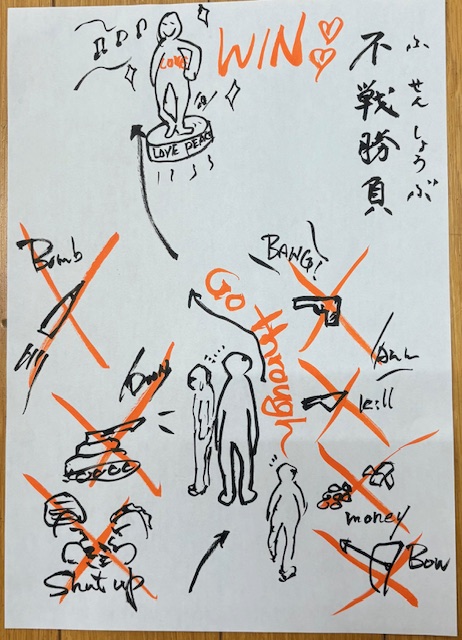 WIN!
不戦勝負
ふせんしょうぶ
LOVE
LOVE PEACE
Bomb
BANG!
Go through
kill
money
Shut up
Bow